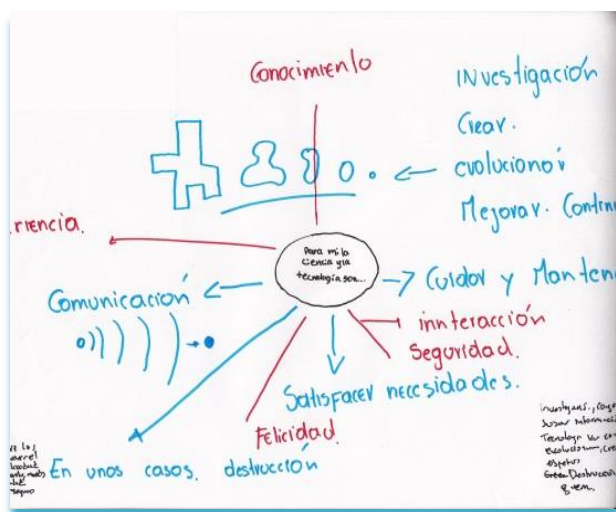 Conocimiento
INvestigación
Crear.
evolucionar
Mejorar. Contin
riencia.
Para mi la
ciencia y la
tecnología son...
Comunicación
Cuidar y Manten
innteracción
Seguridad.
Satisfacer necesidades.
Felicidad.
En unos casos, destrucción